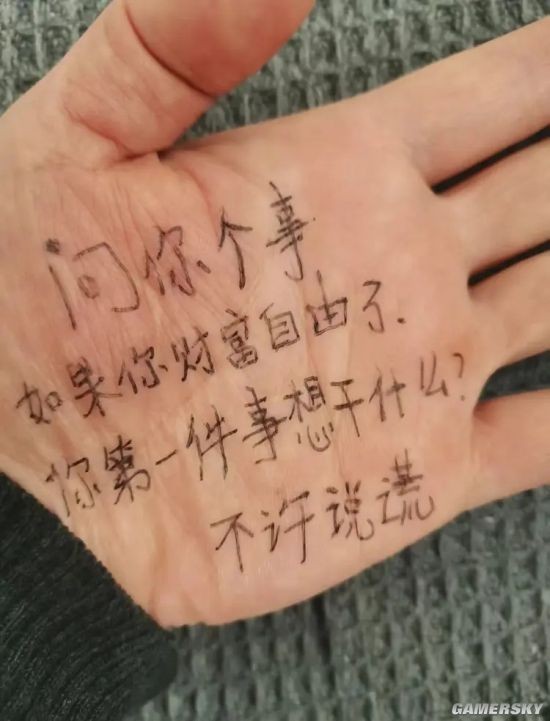 问你个事
如果你财富自由了.
你第一件事想干什么?
不许说谎
GAMERSKY